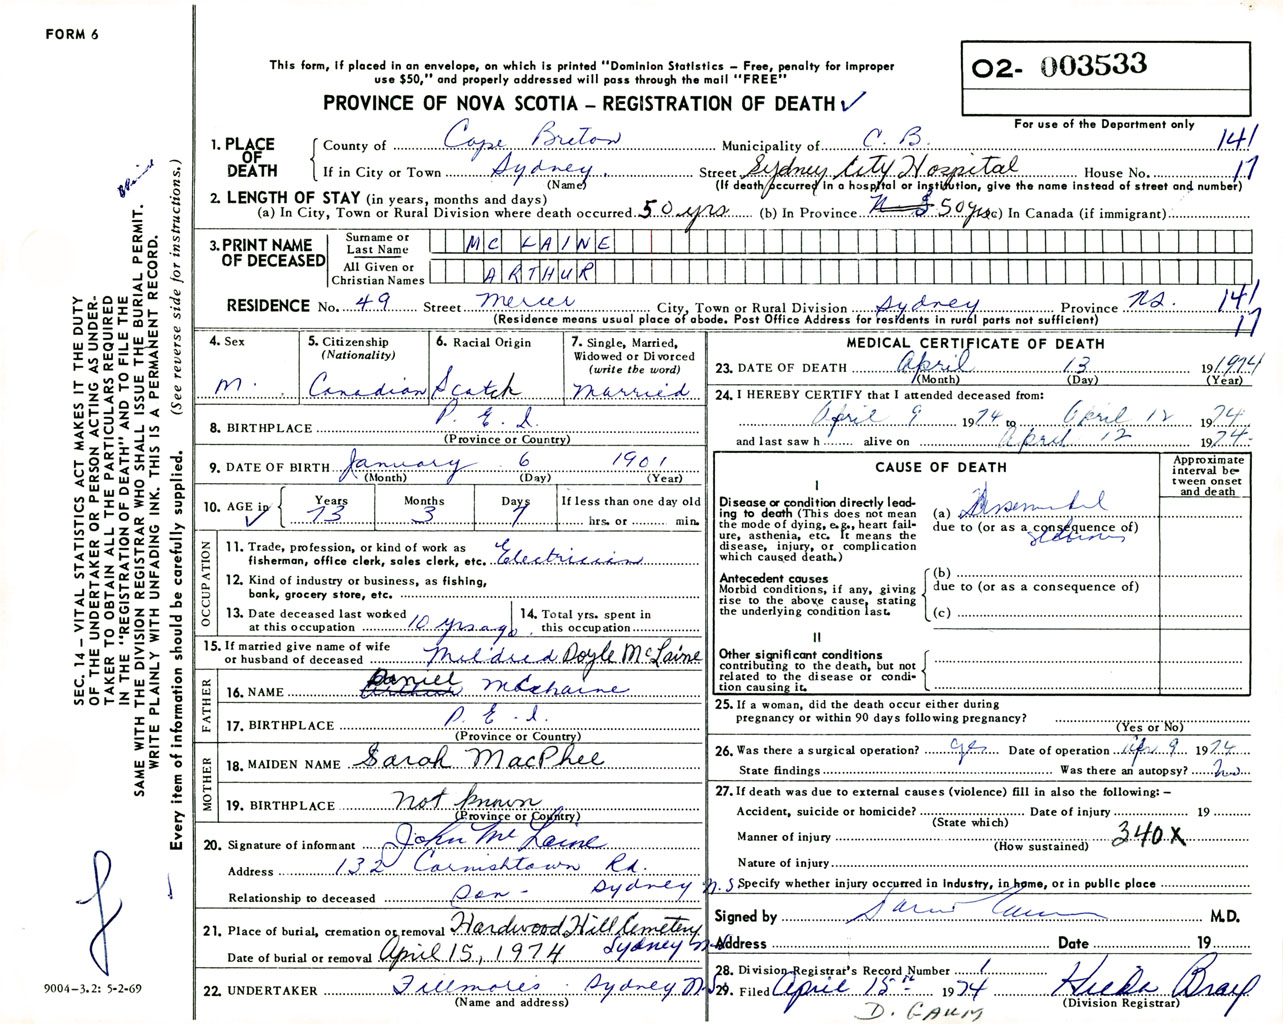 FORM 6
This form, if placed in an envelope, on which is printed "Dominion Statistics – Free, penalty for improper
use $50," and properly addressed will pass through the mail "FREE"
PROVINCE OF NOVA SCOTIA – REGISTRATION OF DEATH ✓
O2- 003533
For use of the Department only
141
17
1. PLACE OF DEATH
County of Cape Breton Municipality of C. B.
If in City or Town Sydney. Street Sydney City Hospital House No.
(Name) (If death occurred in a hospital or institution, give the name instead of street and number)
2. LENGTH OF STAY (in years, months and days)
(a) In City, Town or Rural Division where death occurred 50 yrs (b) In Province 50 yrs (c) In Canada (if immigrant)
3. PRINT NAME OF DECEASED
Surname or Last Name MC LAINE
All Given or Christian Names ARTHUR
RESIDENCE No. 49 Street Mercer City, Town or Rural Division Sydney Province N.S. 141
(Residence means usual place of abode. Post Office Address for residents in rural parts not sufficient) 17
4. Sex
M.
5. Citizenship
(Nationality)
Canadian
6. Racial Origin
Scotch
7. Single, Married,
Widowed or Divorced
(write the word)
Married
8. BIRTHPLACE P. E. I.
(Province or Country)
9. DATE OF BIRTH January 6 1901
(Month) (Day) (Year)
10. AGE in Years Months Days If less than one day old
✓ 73 3 7 hrs. or min.
OCCUPATION
11. Trade, profession, or kind of work as
fisherman, office clerk, sales clerk, etc. Electrician
12. Kind of industry or business, as fishing,
bank, grocery store, etc.
13. Date deceased last worked
at this occupation 10 yrs ago
14. Total yrs. spent in
this occupation
15. If married give name of wife
or husband of deceased Mildred Doyle McLaine
FATHER
16. NAME Daniel McLaine
17. BIRTHPLACE P. E. I.
(Province or Country)
MOTHER
18. MAIDEN NAME Sarah MacPhee
19. BIRTHPLACE Not known
(Province or Country)
20. Signature of informant John McLaine
Address 132 Cornishtown Rd.
Sydney N.S
Relationship to deceased Son -
21. Place of burial, cremation or removal Hardwood Hill Cemetery
Date of burial or removal April 15, 1974 Sydney N.S
22. UNDERTAKER Fillmores Sydney N.S
(Name and address)
MEDICAL CERTIFICATE OF DEATH
23. DATE OF DEATH April 13 191974
(Month) (Day) (Year)
24. I HEREBY CERTIFY that I attended deceased from:
April 9 1974 to April 12 1974
and last saw h alive on April 12 1974
CAUSE OF DEATH
Approximate
interval be-
tween onset
and death
I
Disease or condition directly lead-
ing to death (This does not mean
the mode of dying, e.g., heart fail-
ure, asthenia, etc. It means the
disease, injury, or complication
which caused death.)
(a)
due to (or as a consequence of)
Antecedent causes
Morbid conditions, if any, giving
rise to the above cause, stating
the underlying condition last.
(b)
due to (or as a consequence of)
(c)
II
Other significant conditions
contributing to the death, but not
related to the disease or condi-
tion causing it.
25. If a woman, did the death occur either during
pregnancy or within 90 days following pregnancy?
(Yes or No)
26. Was there a surgical operation? yes Date of operation Apr 9 1974
State findings Was there an autopsy? No
27. If death was due to external causes (violence) fill in also the following: –
Accident, suicide or homicide? Date of injury 19
(State which)
Manner of injury 340X
(How sustained)
Nature of injury
Specify whether injury occurred in industry, in home, or in public place
Signed by M.D.
Address Date 19
28. Division Registrar's Record Number 1
29. Filed April 15th 1974 Hilda Bray
(Division Registrar)
D. GAUM
SEC. 14 – VITAL STATISTICS ACT MAKES IT THE DUTY
OF THE UNDERTAKER OR PERSON ACTING AS UNDER-
TAKER TO OBTAIN ALL THE PARTICULARS REQUIRED
IN THE "REGISTRATION OF DEATH" AND TO FILE THE
SAME WITH THE DIVISION REGISTRAR WHO SHALL ISSUE THE BURIAL PERMIT.
WRITE PLAINLY WITH UNFADING INK. THIS IS A PERMANENT RECORD.
Every item of information should be carefully supplied. (See reverse side for instructions.)
9004-3.2: 5-2-69